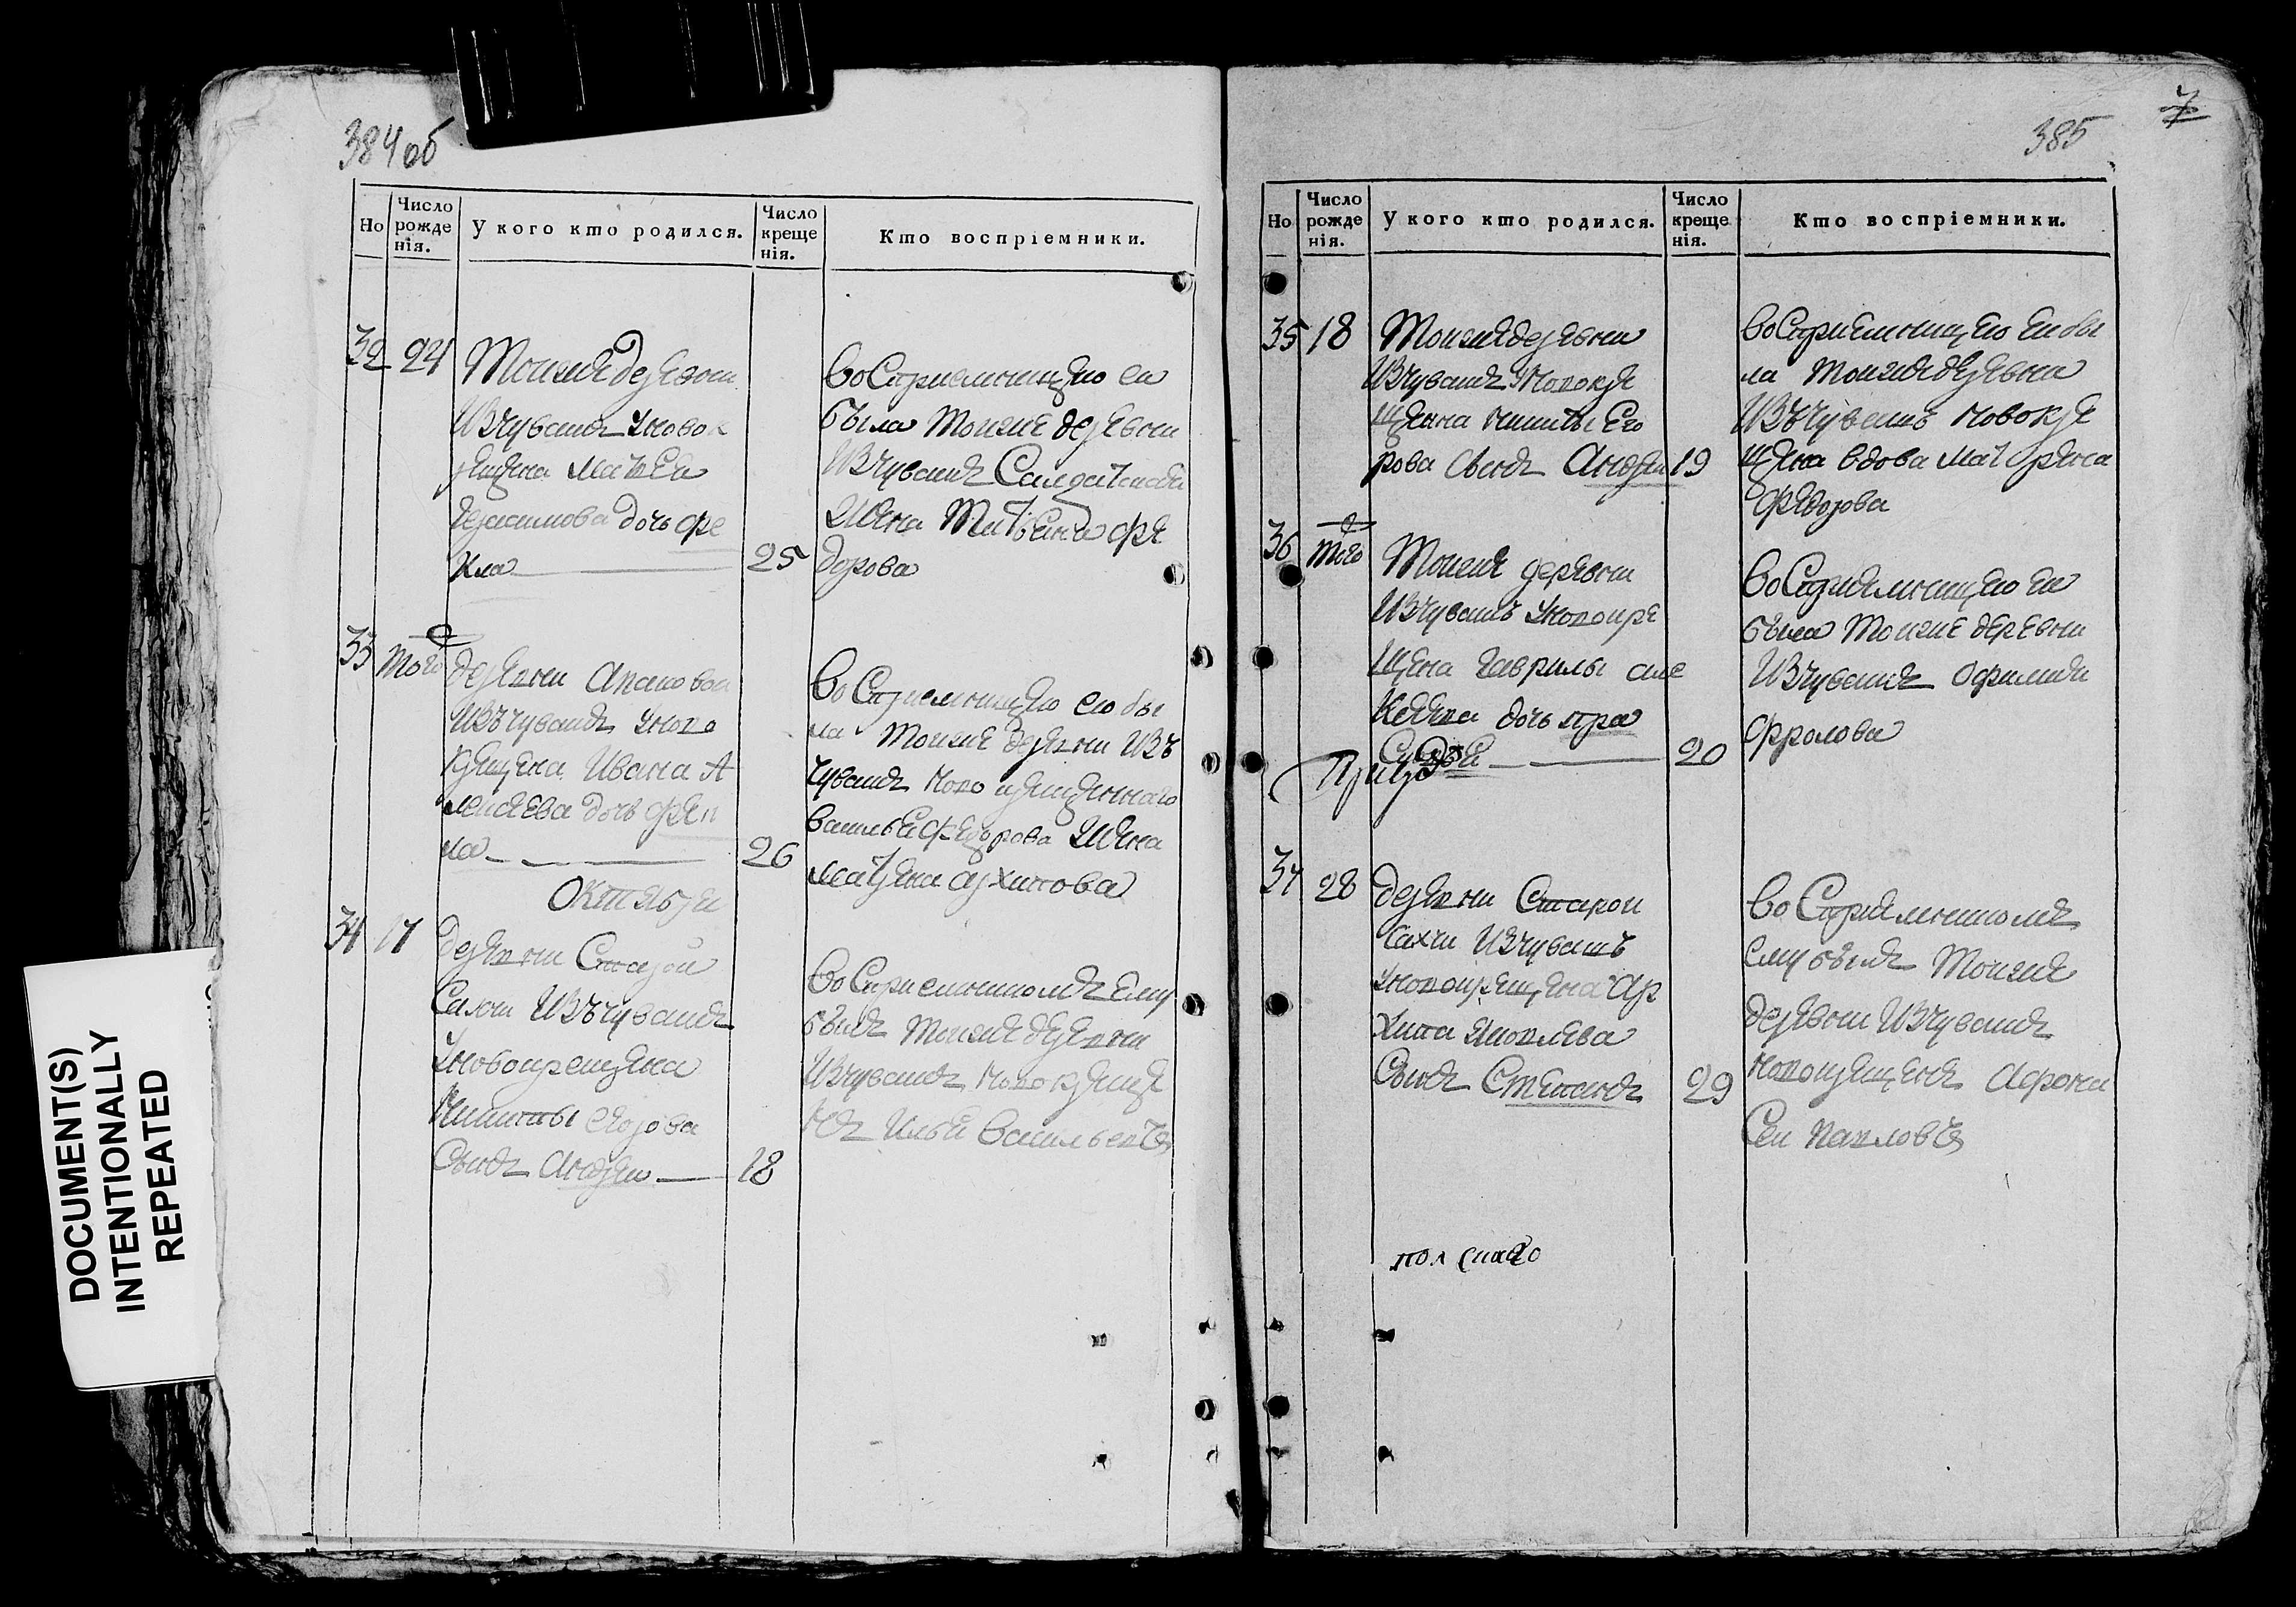 384 об
Но
Число рожденія.
У кого кто родился.
Число крещенія.
Кто воспріемники.
32 24
Тоизже деревни
Изчувашъ уновок
рещена Матвея
Герасимова дочь Фе
кла 25
восприемницею ей
была тоизже деревни
Изчувашъ Салдатская
жена Матвеева Фе
дорова
33 того
деревни
Изъчувашъ уново
крещена Ивана А
лексеева дочь Фек
ла 26
восприемницею ею бы
ла тоизже деревни Изъ
чувашъ новокрещеннаго
Василья Федорова жена
Матрена Архипова
Октября
34 17
деревни Старой
Сахчи Изъчувашъ
уновокрещена
Никиты Егорова
сынъ Андрей 18
восприемникомъ ему
былъ тоизже деревни
Изчувашъ новокреще
нъ Илья Васильевъ
DOCUMENT(S)
INTENTIONALLY
REPEATED
385
7
Но
Число рожденія.
У кого кто родился.
Число крещенія.
Кто воспріемники.
35 18
Тоизже деревни
Изчувашъ уновокре
щена Никиты Его
рова сынъ Андрей 19
восприемницею ей бы
ла тоизже деревни
Изъчувашъ новокре
щена вдова Матрена
Федорова
36 того
Тоизже деревни
Изчувашъ уновокре
щена Гаврилы Але
ксеева дочь Пра
сковья 20
восприемницею ей
была тоизже деревни
Изчувашъ Офимия
Фролова
37 28
деревни Старои
Сахчи Изчувашъ
уновокрещена Ар
хипа Яковлева
сынъ Степанъ 29
восприемникомъ
ему былъ тоизже
деревни Изчувашъ
новокрещенъ Афона
сей Павловъ